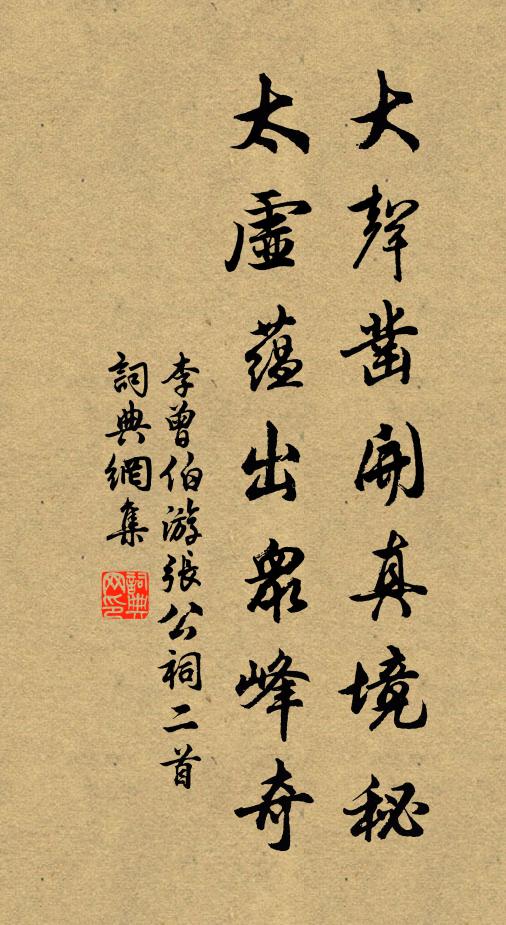 大聲鑿開真境秘
太虛蘊出眾峰奇
李曾伯游張公祠二首
詞典網集
詞典网印